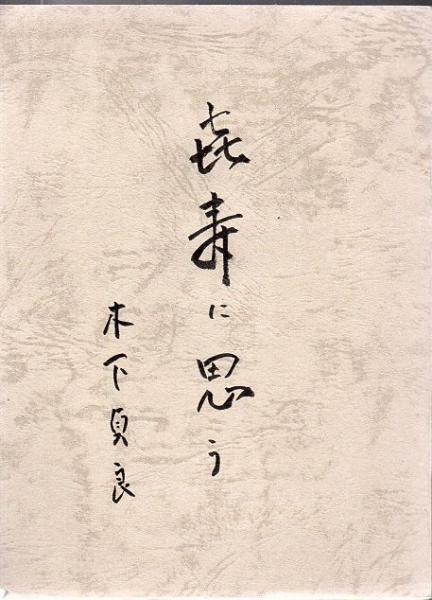 㐂寿に思う
木下貞良